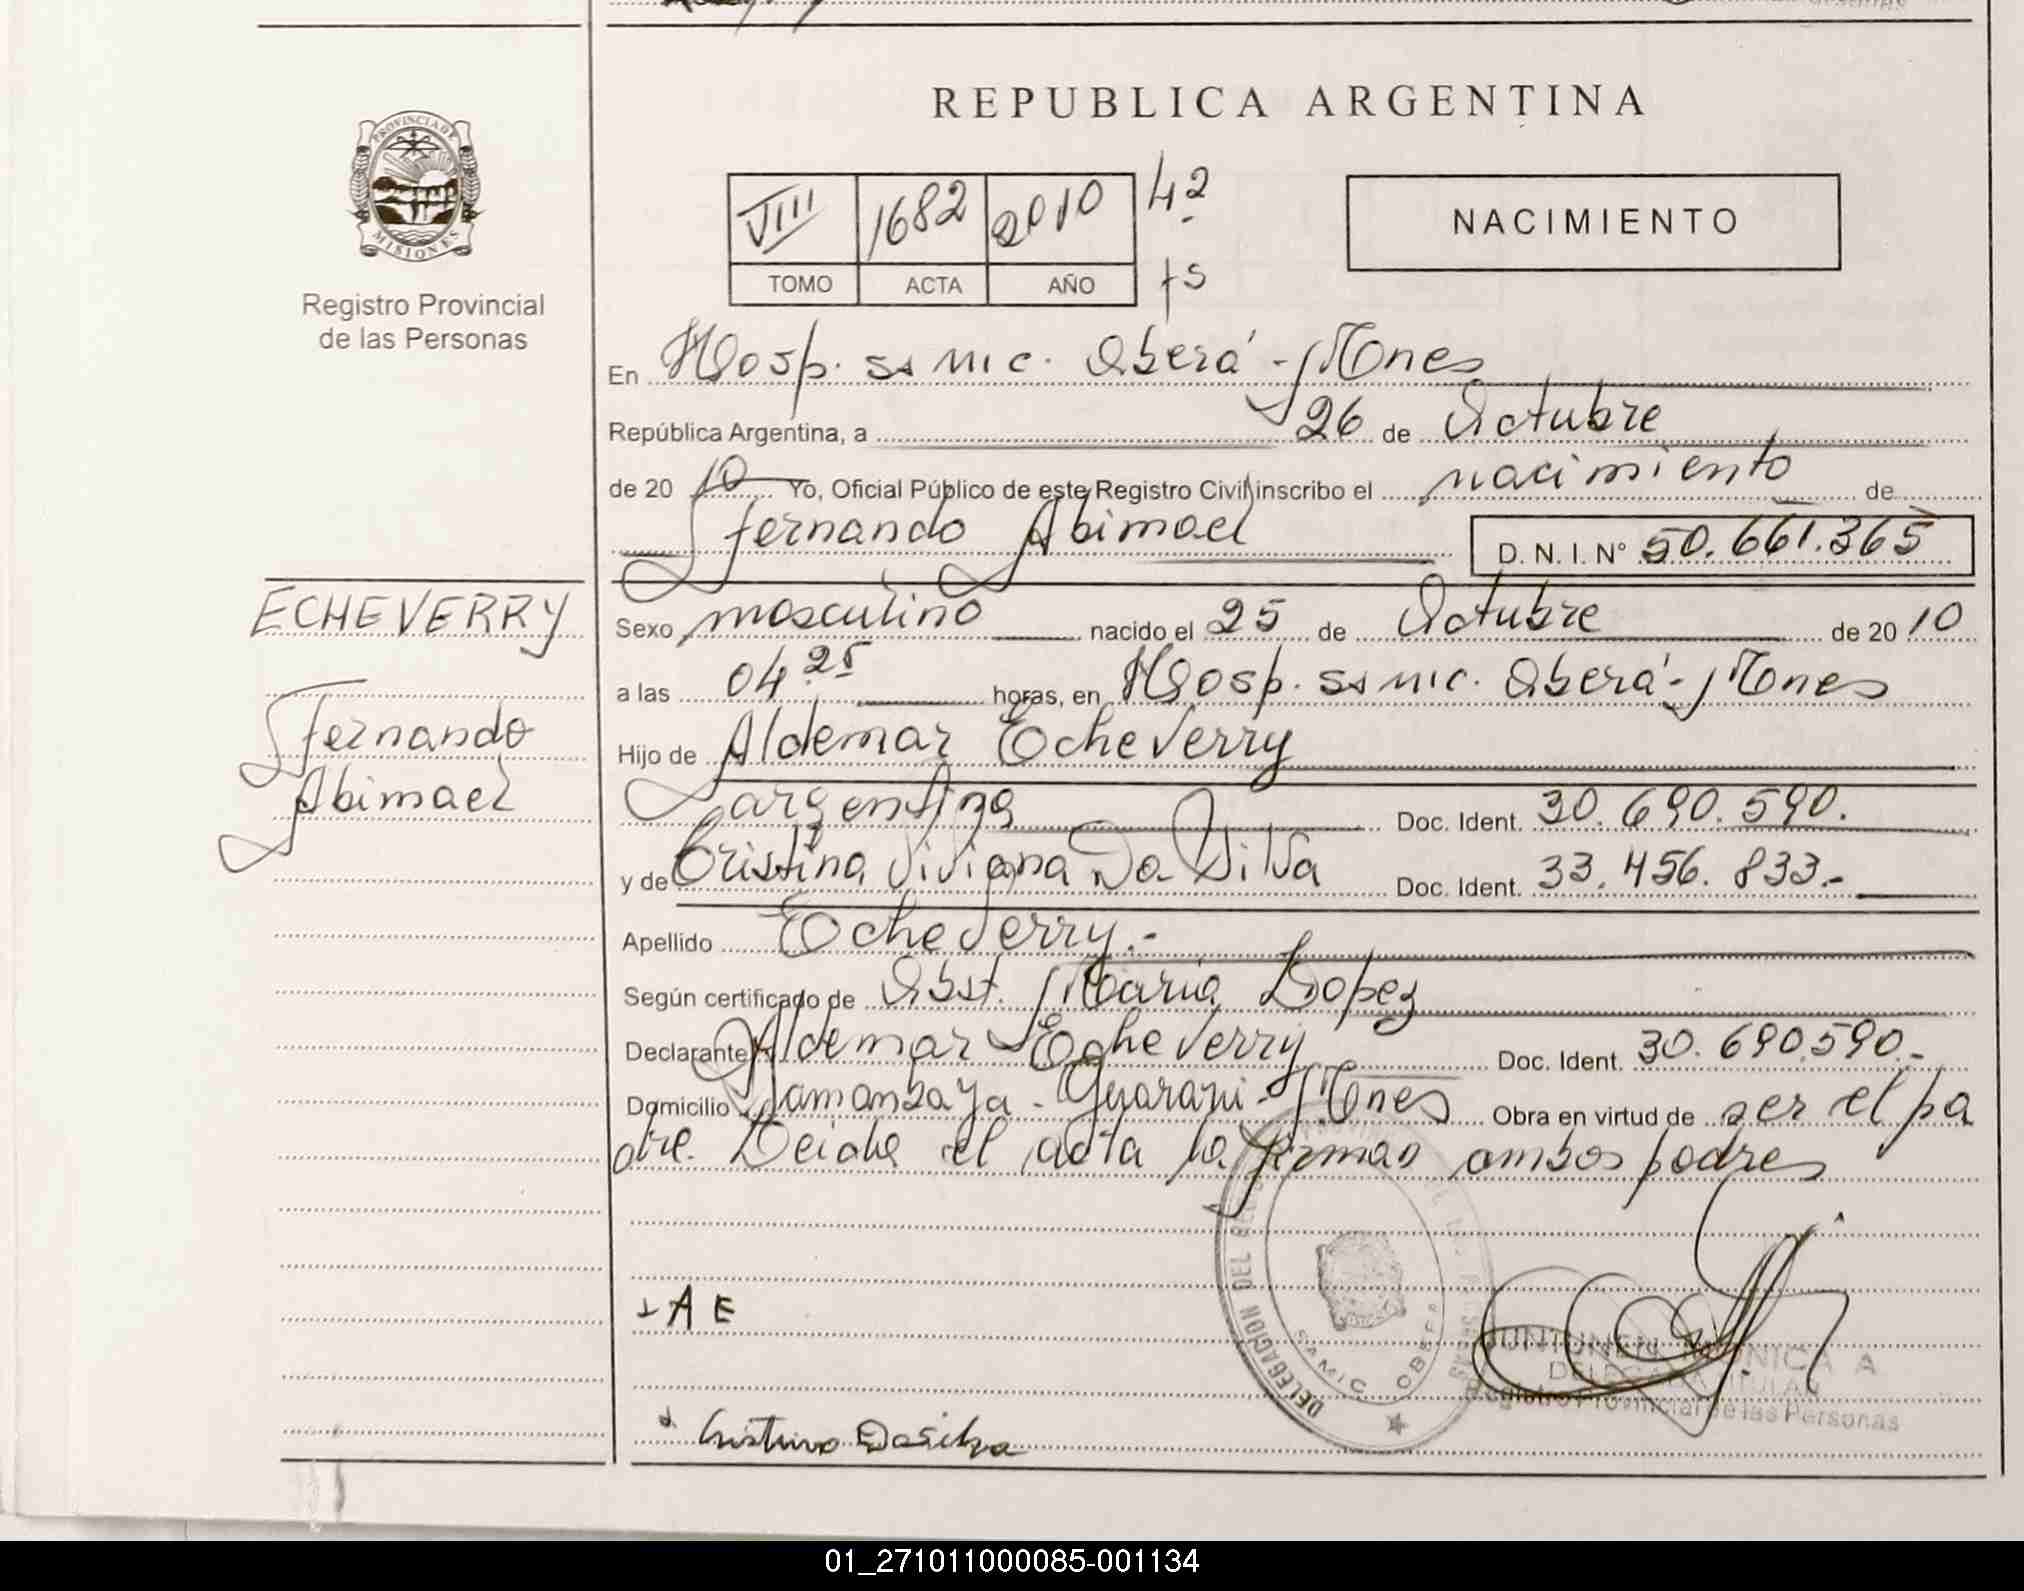 REPUBLICA ARGENTINA
PROVINCIA DE
MISIONES
Registro Provincial
de las Personas
VIII 1682 2010 4ª
TOMO ACTA AÑO
NACIMIENTO
En Hosp. ss mic. Oberá - Mnes
República Argentina, a 26 de Octubre
de 2010 Yo, Oficial Público de este Registro Civil inscribo el nacimiento de
Fernando Abimael D. N. I. Nº 50.661.365
ECHEVERRY
Fernando
Abimael
Sexo masculino nacido el 25 de Octubre de 2010
a las 04.25 horas, en Hosp. ss mic. Oberá - Mnes
Hijo de Aldemar Echeverry
argentina Doc. Ident. 30.690.590.
y de Cristina Viviana Da Silva Doc. Ident. 33.456.833.-
Apellido Echeverry.-
Según certificado de Obst. Maria Lopez
Declarante Aldemar Echeverry Doc. Ident. 30.690.590.-
Domicilio Guarani - Mnes Obra en virtud de ser el pa
dre. Leida el acta la firman ambos padres
A E
DELEGACION DEL
SAMIC OBERA
MONICA A
Registro Provincial de las Personas
Cristina Dasilva
01_271011000085-001134